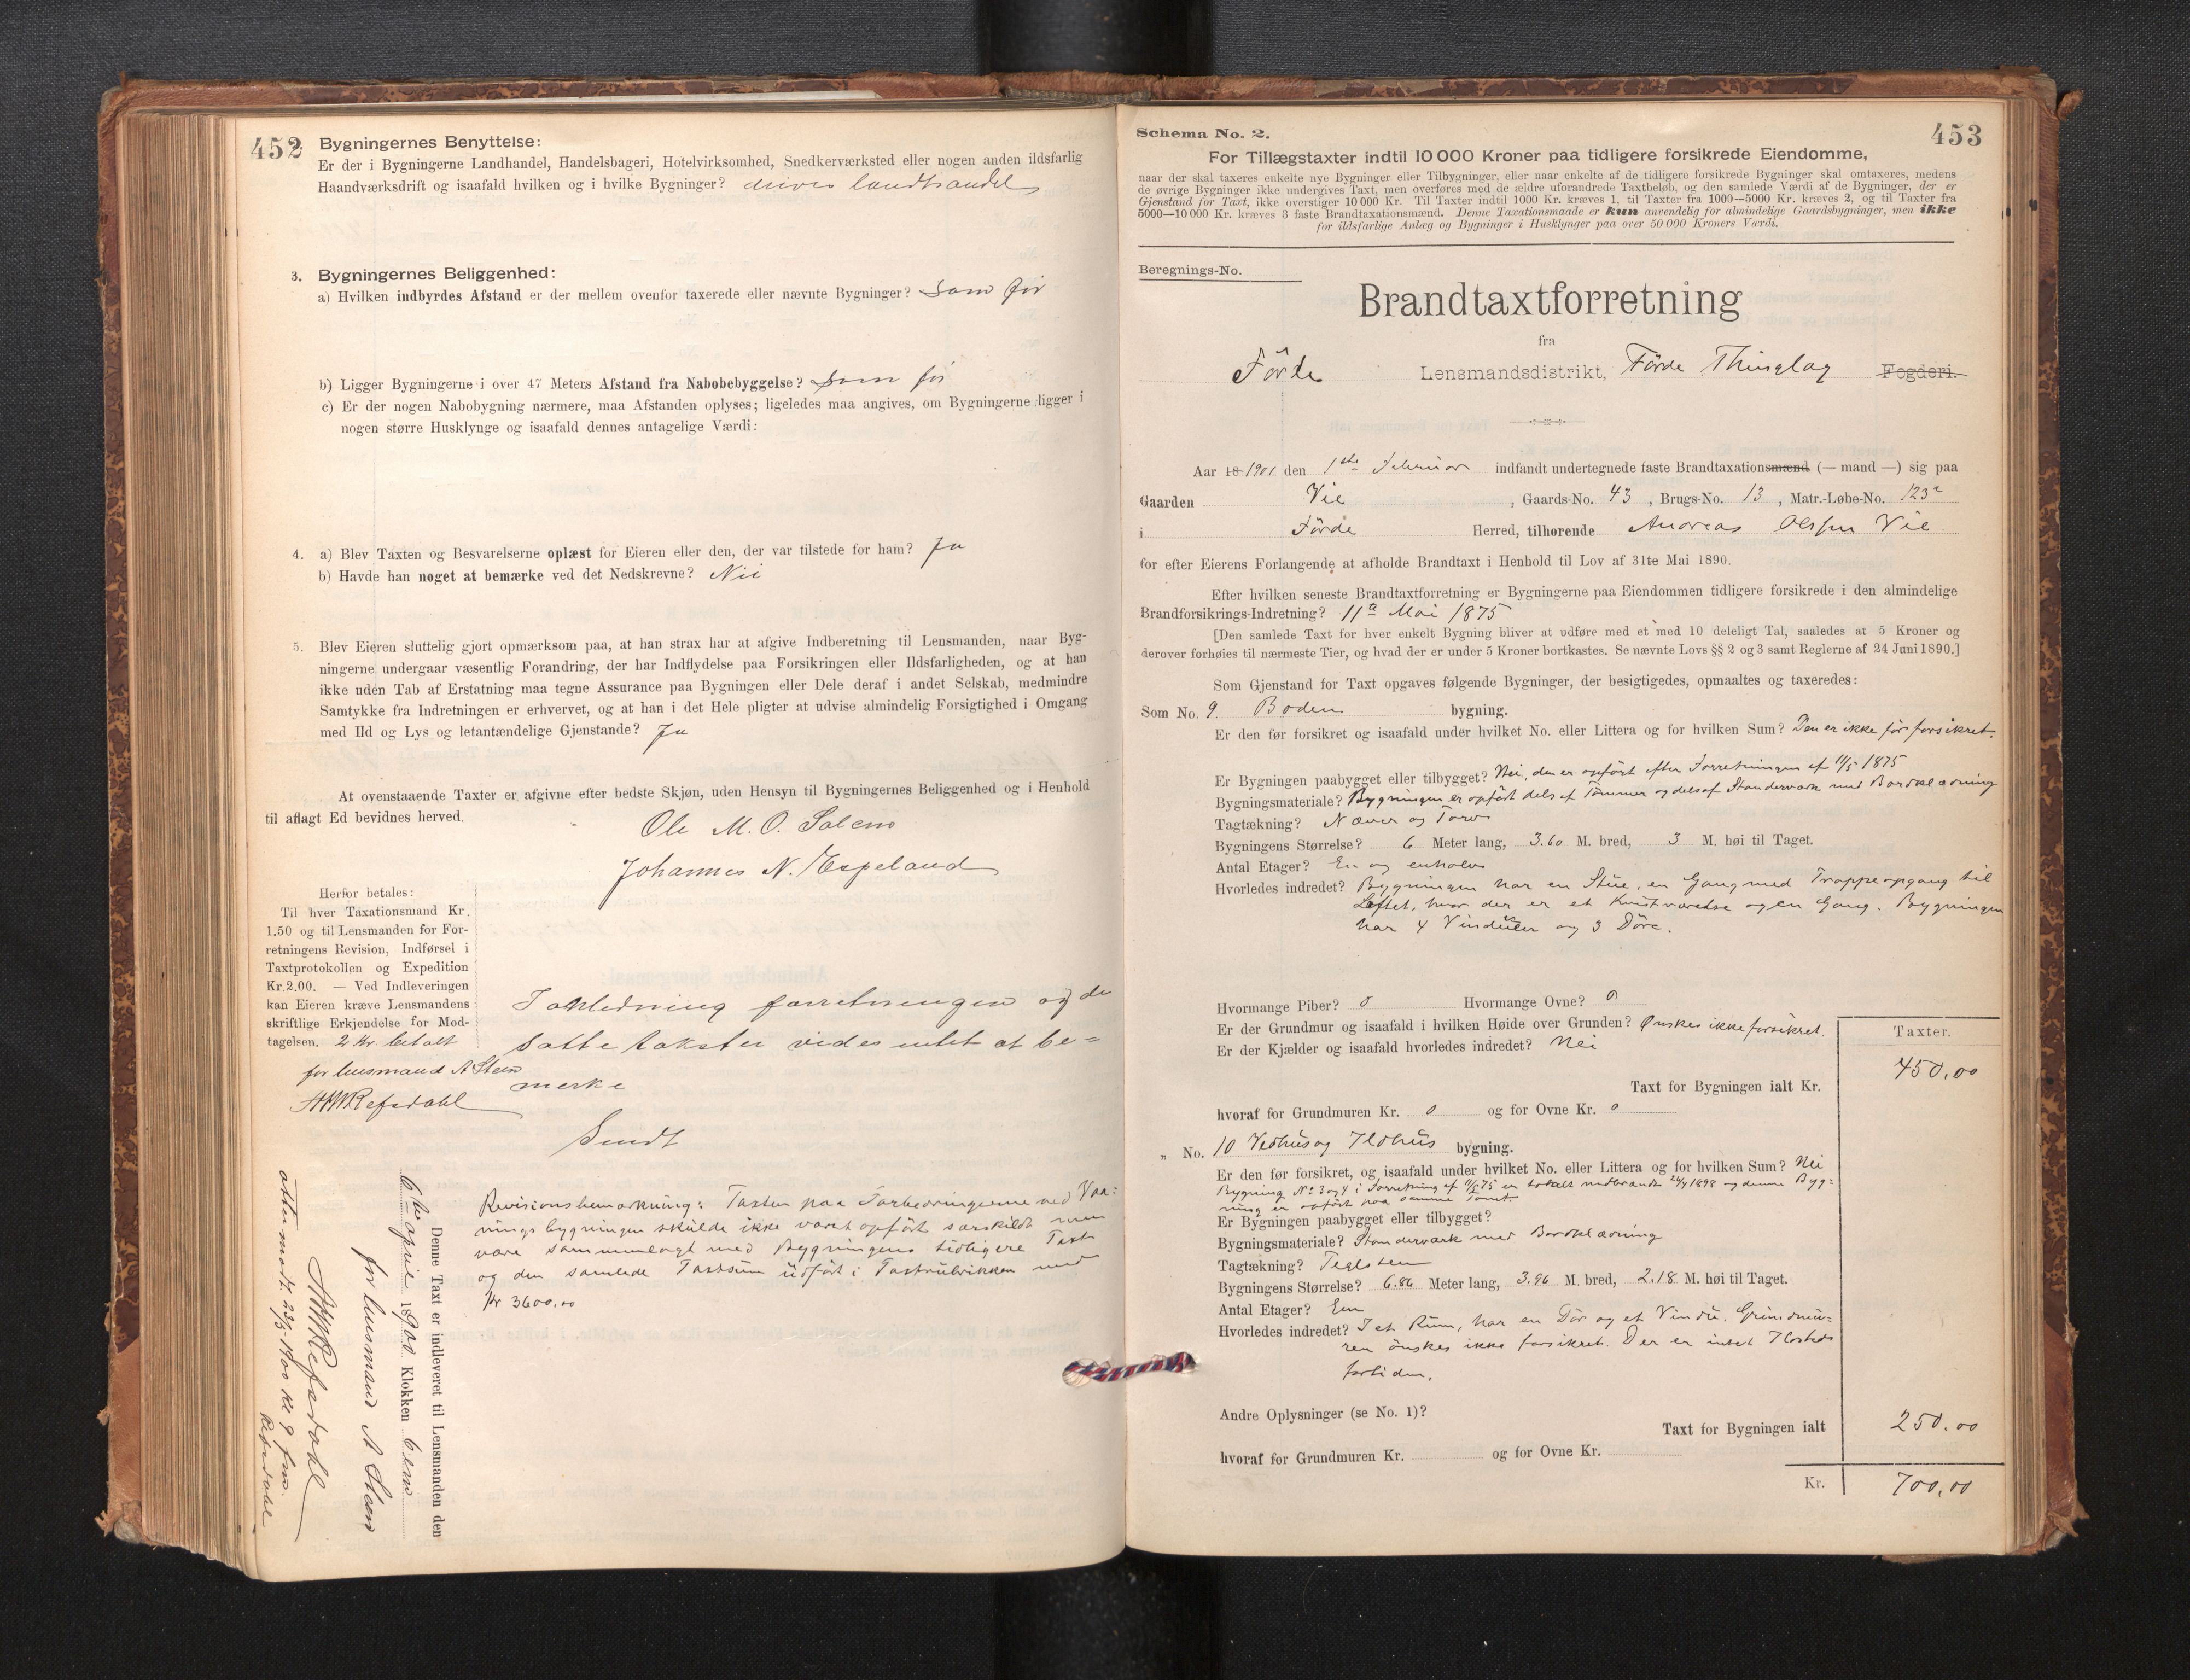 452
Bygningernes Benyttelse:
Er der i Bygningerne Landhandel, Handelsbageri, Hotelvirksomhed, Snedkerværksted eller nogen anden ildsfarlig
Haandværksdrift og isaafald hvilken og i hvilke Bygninger? drives landhandel
3. Bygningernes Beliggenhed:
a) Hvilken indbyrdes Afstand er der mellem ovenfor taxerede eller nævnte Bygninger? Som før
b) Ligger Bygningerne i over 47 Meters Afstand fra Nabobebyggelse? Som før
c) Er der nogen Nabobygning nærmere, maa Afstanden oplyses; ligeledes maa angives, om Bygningerne ligger i
nogen større Husklynge og isaafald dennes antagelige Værdi:
4. a) Blev Taxten og Besvarelserne oplæst for Eieren eller den, der var tilstede for ham? Ja
b) Havde han noget at bemærke ved det Nedskrevne? Nei
5. Blev Eieren sluttelig gjort opmærksom paa, at han strax har at afgive Indberetning til Lensmanden, naar Byg-
ningerne undergaar væsentlig Forandring, der har Indflydelse paa Forsikringen eller Ildsfarligheden, og at han
ikke uden Tab af Erstatning maa tegne Assurance paa Bygningen eller Dele deraf i andet Selskab, medmindre
Samtykke fra Indretningen er erhvervet, og at han i det Hele pligter at udvise almindelig Forsigtighed i Omgang
med Ild og Lys og letantændelige Gjenstande? Ja
At ovenstaaende Taxter er afgivne efter bedste Skjøn, uden Hensyn til Bygningernes Beliggenhed og i Henhold
til aflagt Ed bevidnes herved.
Ole M. O. Solem
Johannes N. Espeland
Herfor betales:
Til hver Taxationsmand Kr.
1.50 og til Lensmanden for For-
retningens Revision, Indførsel i
Taxtprotokollen og Expedition
Kr. 2.00. — Ved Indleveringen
kan Eieren kræve Lensmandens
skriftlige Erkjendelse for Mod-
tagelsen. 2 Kr. betalt
for lensmand A Steen
Refsdahl
I anledning forretningen og de
satte takster vides intet at be=
merke
Sundt
Revisionsbemærkning: Taxten paa Forbedringerne ved Vaa=
ningsbygningen skulde ikke været opført særskildt men
være sammenlagt med Bygningens tidligere Taxt
og den samlede Taxtsum udført i Taxtrubrikken med
Kr 3600,00
Denne Taxt er indleveret til Lensmanden den
6te april 1900 Klokken 6 em
for lensmand A Steen
Refsdahl
atter modt. 23/5 1900 kl 9 fm.
Refsdahl
453
Schema No. 2.
For Tillægstaxter indtil 10 000 Kroner paa tidligere forsikrede Eiendomme,
naar der skal taxeres enkelte nye Bygninger eller Tilbygninger, eller naar enkelte af de tidligere forsikrede Bygninger skal omtaxeres, medens
de øvrige Bygninger ikke undergives Taxt, men overføres med de ældre uforandrede Taxtbeløb, og den samlede Værdi af de Bygninger, der er
Gjenstand for Taxt, ikke overstiger 10 000 Kr. Til Taxter indtil 1000 Kr. kræves 1, til Taxter fra 1000—5000 Kr. kræves 2, og til Taxter fra
5000—10 000 Kr. kræves 3 faste Brandtaxationsmænd. Denne Taxationsmaade er kun anvendelig for almindelige Gaardsbygninger, men ikke
for ildsfarlige Anlæg og Bygninger i Husklynger paa over 50 000 Kroners Værdi.
Beregnings-No.
Brandtaxtforretning
fra
Förde Lensmandsdistrikt, Förde Thinglag Fogderi.
Aar 18 1901 den 1ste Februar indfandt undertegnede faste Brandtaxationsmænd (— mand —) sig paa
Gaarden Vie , Gaards-No. 43 , Brugs-No. 13 , Matr.-Løbe-No. 123a
i Förde Herred, tilhørende Andreas Olsen Vie
for efter Eierens Forlangende at afholde Brandtaxt i Henhold til Lov af 31te Mai 1890.
Efter hvilken seneste Brandtaxtforretning er Bygningerne paa Eiendommen tidligere forsikrede i den almindelige
Brandforsikrings-Indretning? 11te Mai 1875
[Den samlede Taxt for hver enkelt Bygning bliver at udføre med et med 10 deleligt Tal, saaledes at 5 Kroner og
derover forhøies til nærmeste Tier, og hvad der er under 5 Kroner bortkastes. Se nævnte Lovs §§ 2 og 3 samt Reglerne af 24 Juni 1890.]
Som Gjenstand for Taxt opgaves følgende Bygninger, der besigtigedes, opmaaltes og taxeredes:
Som No. 9 Boden bygning.
Er den før forsikret og isaafald under hvilket No. eller Littera og for hvilken Sum? Den er ikke før forsikret.
Er Bygningen paabygget eller tilbygget? Nei, den er opført efter Forretningen af 11/5 1875
Bygningsmateriale? Bygningen er opført dels af Tømmer og dels af Standerværk med Bordklædning
Tagtækning? Næver og Torv
Bygningens Størrelse? 6 Meter lang, 3.60 M. bred, 3 M. høi til Taget.
Antal Etager? En og enhalv
Hvorledes indredet? Bygningen har en Stue, en Gang med Trappeopgang til
Loftet, hvor der er et Kvistværelse og en Gang. Bygningen
har 4 Vinduer og 3 Döre.
Hvormange Piber? 0 Hvormange Ovne? 0
Er der Grundmur og isaafald i hvilken Høide over Grunden? Ønskes ikke forsikret.
Er der Kjælder og isaafald hvorledes indredet? Nei
Taxter.
Taxt for Bygningen ialt Kr. 450,00
hvoraf for Grundmuren Kr. 0 og for Ovne Kr. 0
„ No. 10 Vedhus og Ildhus bygning.
Er den før forsikret, og isaafald under hvilket No. eller Littera og for hvilken Sum? Nei
Bygning No 3 og 4 i Forretning af 11/5 75 er totalt nedbrændt 24/4 1898 og denne Byg=
ning er opført paa samme Tomt
Er Bygningen paabygget eller tilbygget?
Bygningsmateriale? Standerværk med Bordklædning
Tagtækning? Teglsten
Bygningens Størrelse? 6.86 Meter lang, 3.96 M. bred, 2.18 M. høi til Taget.
Antal Etager? En
Hvorledes indredet? I et Rum, har en Dör og et Vindu. Grundmu=
ren önskes ikke forsikret. Der er intet Ildsted
fortiden.
Andre Oplysninger (se No. 1)?
Taxt for Bygningen ialt 250,00
hvoraf for Grundmuren Kr. og for Ovne Kr.
Kr. 700,00